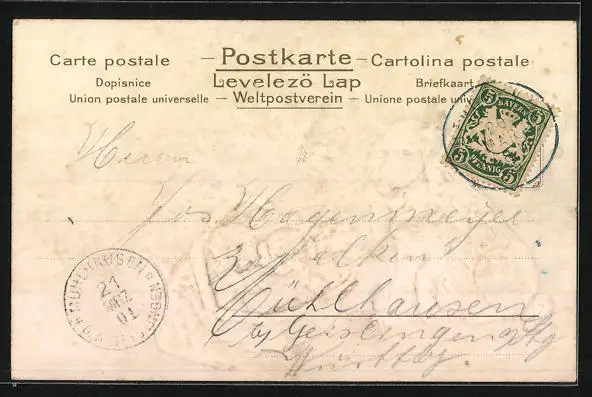 Carte postale — Postkarte — Cartolina postale
Dopisnice Levelező Lap Briefkaart
Union postale universelle — Weltpostverein — Unione postale univ
BAYERN
5 5
5 5
PFENNIG
Herrn
Jos Hagenmeyer
z. Falken
Mühlhausen
b/ Geislingen
Württbg
MÜHLHAUSEN
21
MRZ
01